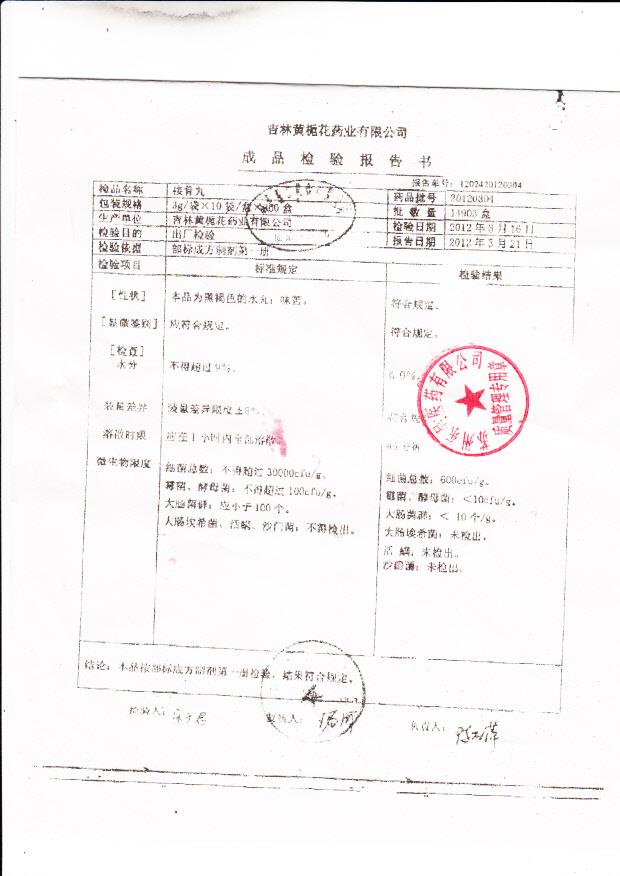 吉林黄栀花药业有限公司
成品检验报告书
报告单号：1202420120304
检品名称 接骨丸 药品批号 20120304
包装规格 3g/袋×10袋/盒×100盒 批数量 14903盒
生产单位 吉林黄栀花药业有限公司 检验日期 2012年3月16日
检验目的 出厂检验 报告日期 2012年3月21日
检验依据 部标成方制剂第一册
检验项目 标准规定 检验结果
[性状] 本品为黑褐色的水丸；味苦。 符合规定。
[显微鉴别] 应符合规定。 符合规定。
[检查]
水分 不得超过9%。 6.0%。
装量差异 装量差异限度±8%
溶散时限 应在1小时内全部溶散。
微生物限度 细菌总数：不得超过30000cfu/g。 细菌总数：600cfu/g。
霉菌、酵母菌：不得超过100cfu/g。 霉菌、酵母菌：<10cfu/g。
大肠菌群：应小于100个。 大肠菌群：<10个/g。
大肠埃希菌、活螨、沙门菌：不得检出。 大肠埃希菌：未检出。
活螨：未检出。
沙门菌：未检出。
医药有限公司
质量管理专用章
结论：本品按部标成方制剂第一册检验，结果符合规定。
检验人： 复核人： 负责人：